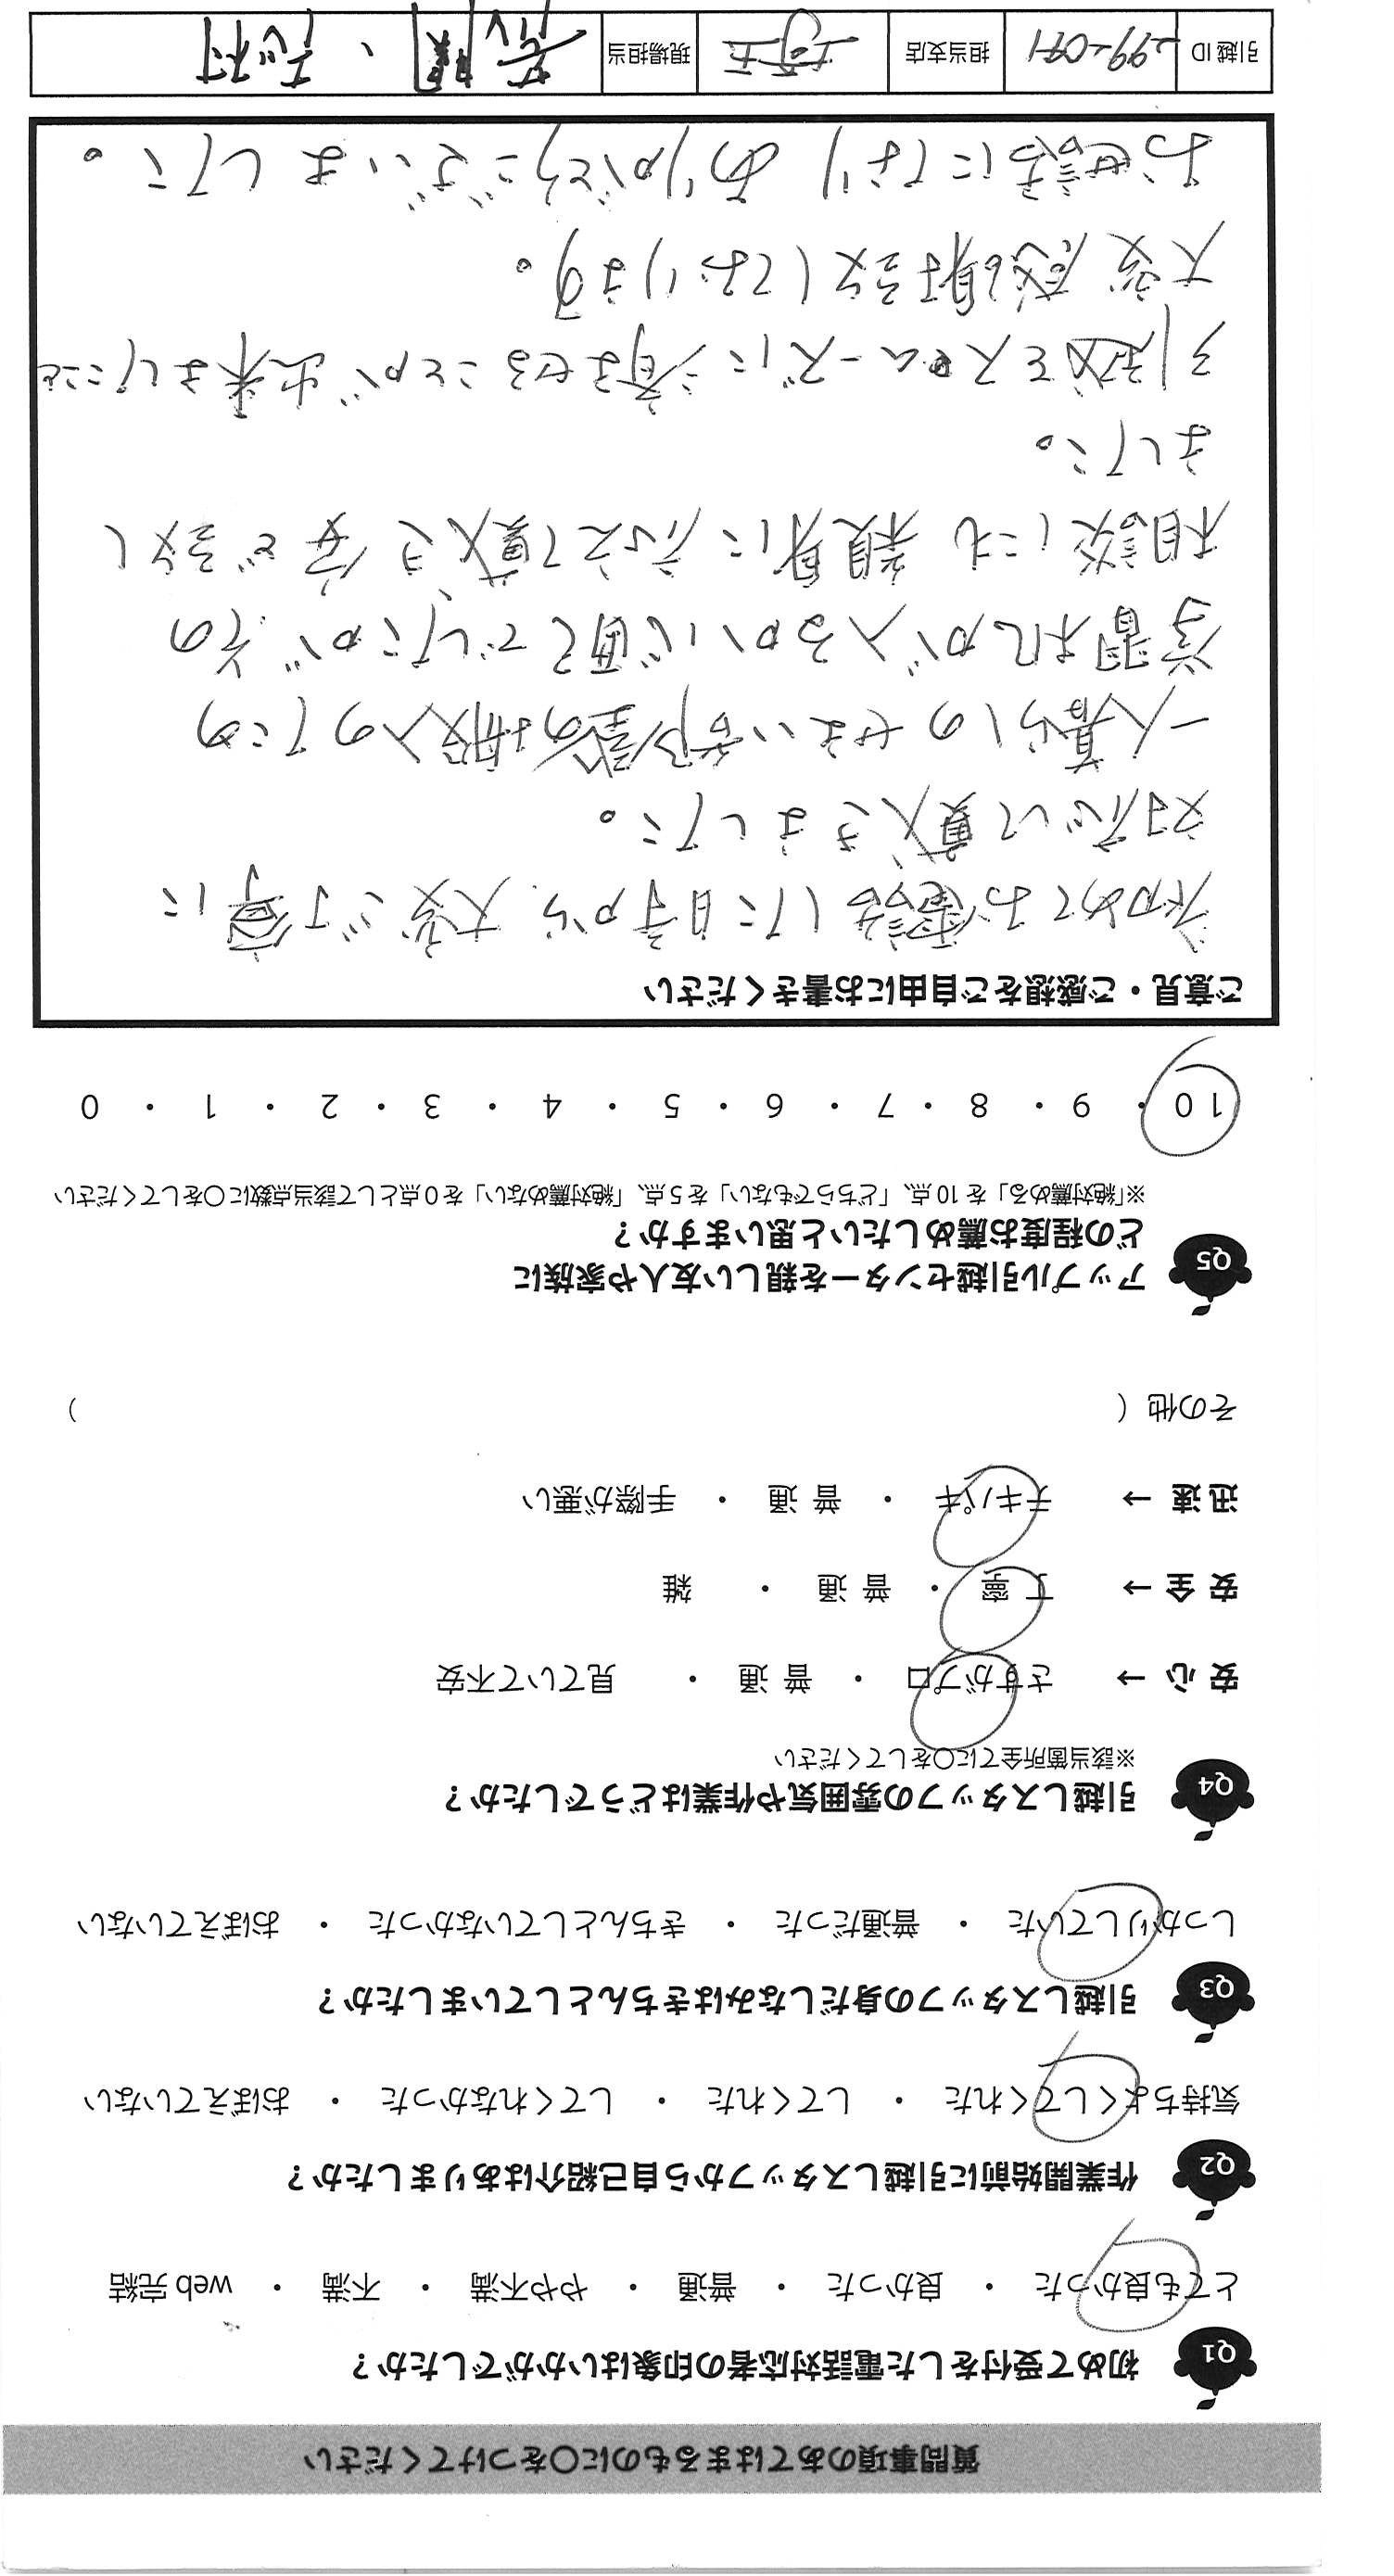 質問事項のあてはまるものに〇をつけてください
Q1 初めて受付をした電話対応者の印象はいかがでしたか？
とても良かった ・ 良かった ・ 普通 ・ やや不満 ・ 不満 ・ web 完結
Q2 作業開始前に引越しスタッフから自己紹介はありましたか？
気持ちよくしてくれた ・ してくれた ・ してくれなかった ・ おぼえていない
Q3 引越しスタッフの身だしなみはきちんとしていましたか？
しっかりしていた ・ 普通だった ・ きちんとしていなかった ・ おぼえていない
Q4 引越しスタッフの雰囲気や作業はどうでしたか？
※該当箇所全てに〇をしてください
安心 → さすがプロ ・ 普通 ・ 見ていて不安
安全 → 丁寧 ・ 普通 ・ 雑
迅速 → テキパキ ・ 普通 ・ 手際が悪い
その他（ ）
Q5 アップル引越センターを親しい友人や家族に
どの程度お薦めしたいと思いますか？
※「絶対薦める」を 10 点、「どちらでもない」を 5 点、「絶対薦めない」を 0 点として該当点数に〇をしてください
10 ・ 9 ・ 8 ・ 7 ・ 6 ・ 5 ・ 4 ・ 3 ・ 2 ・ 1 ・ 0
ご意見・ご感想をご自由にお書きください
初めてお電話した時から、大変ご丁寧に
対応して頂きました。
一人暮らしのせまい部屋の搬入のため
学習机が入るか心配でしたが、その
相談にも親身に応えて頂き安ど致し
ました。
引越をスムーズに済ませることが出来ましたこと
大変感謝致しております。
お世話になりありがとうございました。
引越 ID 299-041 担当支店 埼玉 現場担当